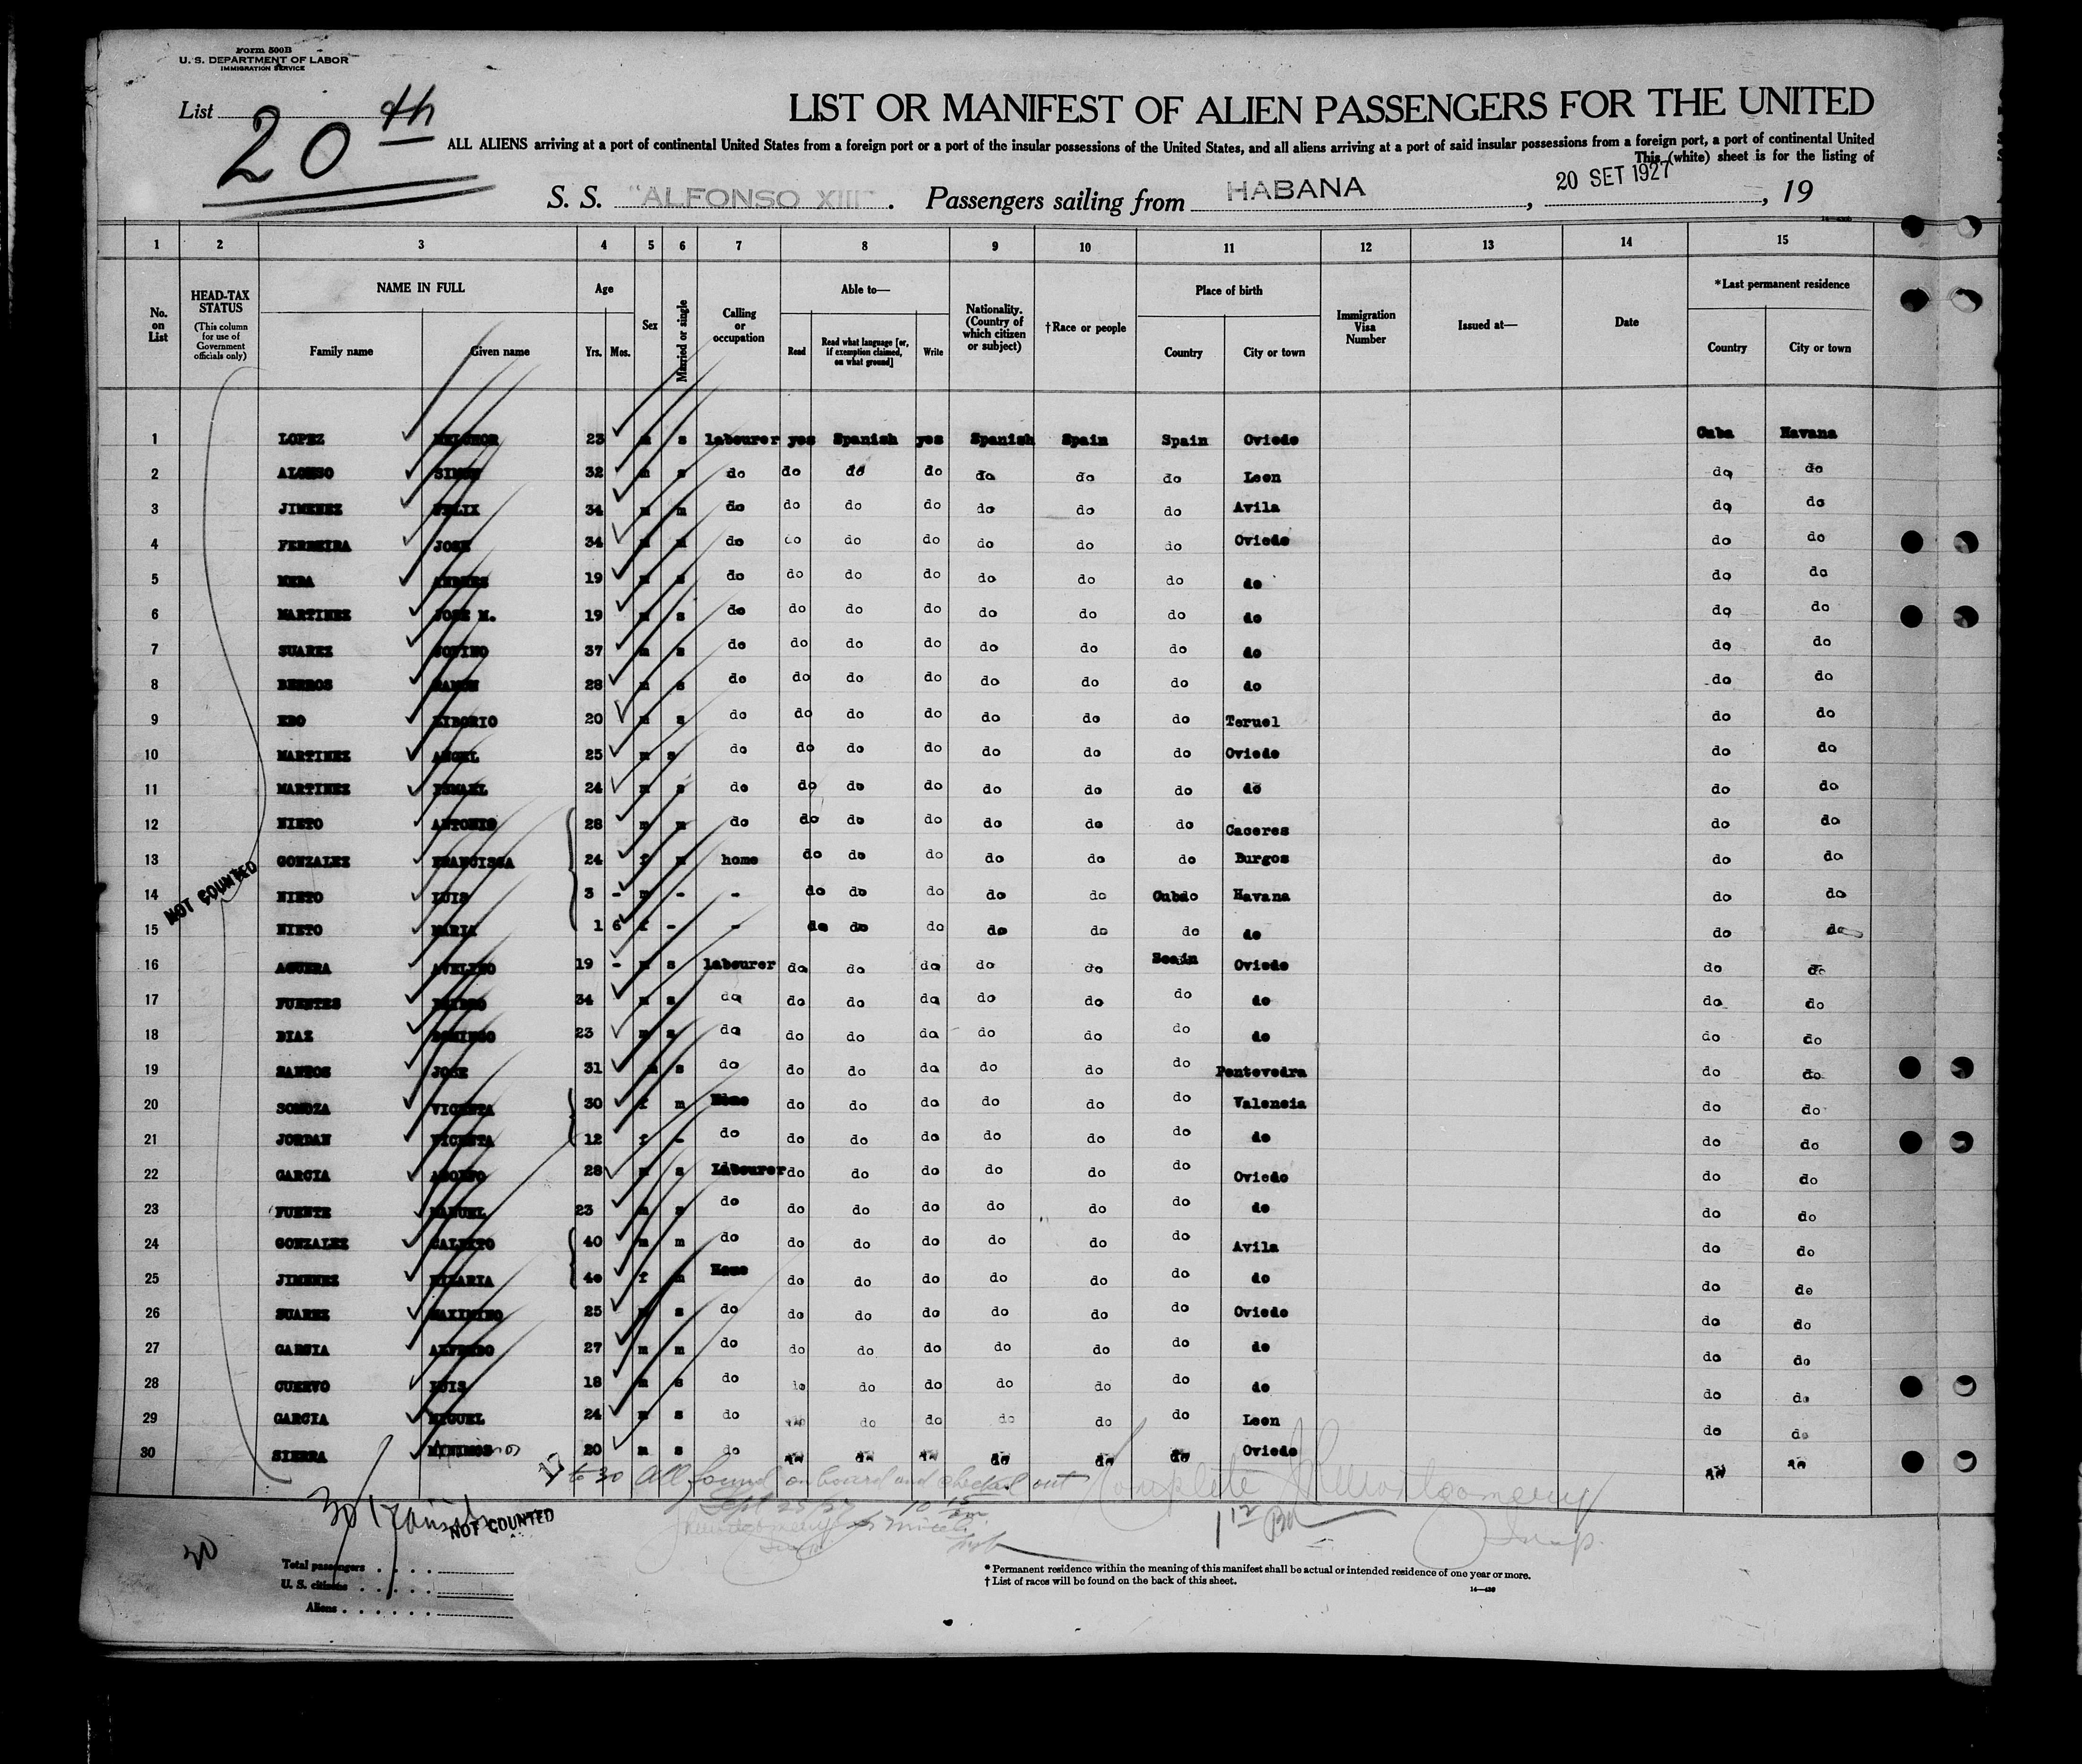 Form 500B
U. S. DEPARTMENT OF LABOR
IMMIGRATION SERVICE
List
20th
LIST OR MANIFEST OF ALIEN PASSENGERS FOR THE UNITED
ALL ALIENS arriving at a port of continental United States from a foreign port or a port of the insular possessions of the United States, and all aliens arriving at a port of said insular possessions from a foreign port, a port of continental United
This (white) sheet is for the listing of
S. S. "ALFONSO XIII". Passengers sailing from HABANA, 20 SET 1927, 19
1 2 3 4 5 6 7 8 9 10 11 12 13 14 15
No. on List
HEAD-TAX STATUS (This column for use of Government officials only)
NAME IN FULL
Family name Given name
Age
Yrs. Mos.
Sex
Married or single
Calling or occupation
Able to—
Read
Read what language [or, if exemption claimed, on what ground]
Write
Nationality. (Country of which citizen or subject)
†Race or people
Place of birth
Country City or town
Immigration Visa Number
Issued at—
Date
*Last permanent residence
Country City or town
1 LOPEZ MELCHOR 23 m s labourer yes Spanish yes Spanish Spain Spain Oviedo Cuba Havana
2 ALONSO SIMON 32 m s do do do do do do do Leon do do
3 JIMENEZ FELIX 34 m m do do do do do do do Avila do do
4 FERREIRA JOSE 34 m m do do do do do do do Oviedo do do
5 ANDRES 19 m s do do do do do do do do do do
6 MARTINEZ JOSE M. 19 m s do do do do do do do do do do
7 SUAREZ JOVINO 37 m s do do do do do do do do do do
8 BERROS RAMON 28 m s do do do do do do do do do do
9 LIBORIO 20 m s do do do do do do do Teruel do do
10 MARTINEZ ANGEL 25 m s do do do do do do do Oviedo do do
11 MARTINEZ ISMAEL 24 m s do do do do do do do do do do
12 NIETO ANTONIO 28 m m do do do do do do do Caceres do do
13 GONZALEZ FRANCISCA 24 f m home do do do do do do Burgos do do
14 NIETO LUIS 3 - m - - do do do do do Cubdo Havana do do
15 NIETO MARIA 1 6 f - - do do do do do do do do do
16 AGUERA AVELINO 19 - m s labourer do do do do do Spain Oviedo do do
17 FUENTES 34 m s do do do do do do do do do do
18 DIAZ DOMINGO 23 m s do do do do do do do do do do
19 SANTOS JOSE 31 m s do do do do do do do Pontevedra do do
20 SOMOZA VICENTA 30 f m Home do do do do do do Valencia do do
21 JORDAN VICENTA 12 f - do do do do do do do do do do
22 GARCIA ADOLFO 28 m s Labourer do do do do do do Oviedo do do
23 FUENTE MANUEL 23 m s do do do do do do do do do do
24 GONZALEZ CALIXTO 40 m m do do do do do do do Avila do do
25 JIMENEZ HILARIA 40 f m Home do do do do do do do do do
26 SUAREZ MAXIMINO 25 m s do do do do do do do Oviedo do do
27 GARCIA ALFREDO 27 m m do do do do do do do do do do
28 CUERVO LUIS 18 m s do do do do do do do do do do
29 GARCIA MIGUEL 24 m s do do do do do do do Leon do do
30 SIERRA 20 m s do do do do do do do Oviedo do do
NOT COUNTED
to 30 All found on board and checked out
Sept 25/27 10 15 am
Complete Montgomery
Insp.
30 Transits
NOT COUNTED
30
Total passengers
U. S. citizens
Aliens
* Permanent residence within the meaning of this manifest shall be actual or intended residence of one year or more.
† List of races will be found on the back of this sheet.
14—430